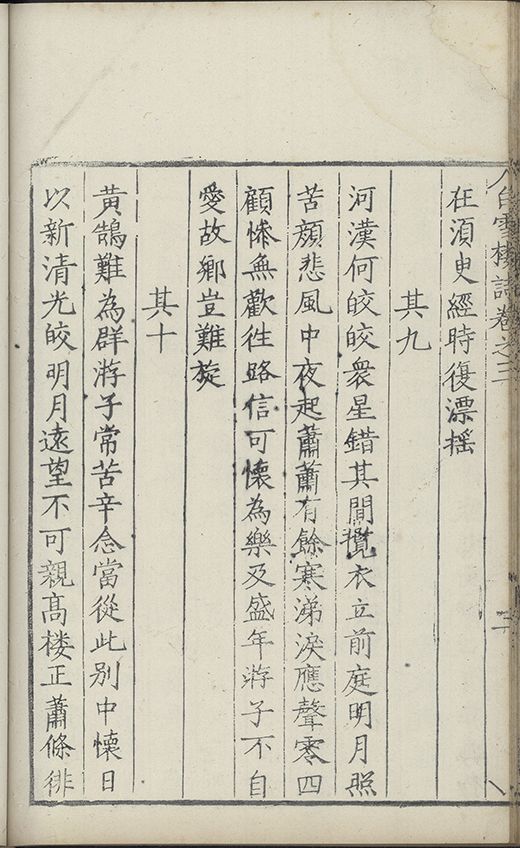 白雪樓詩卷之二
在湏臾經時復漂摇
其九
河漢何皎皎衆星錯其間攬衣立前庭明月照
苦顔悲風中夜起蕭蕭有餘寒涕淚應聲零四
顧慘無歡徃路信可懷為樂及盛年游子不自
愛故鄉豈難旋
其十
黄鵠難為群游子常苦辛念當從此别中懷日
以新清光皎明月遠望不可親髙楼正蕭條徘